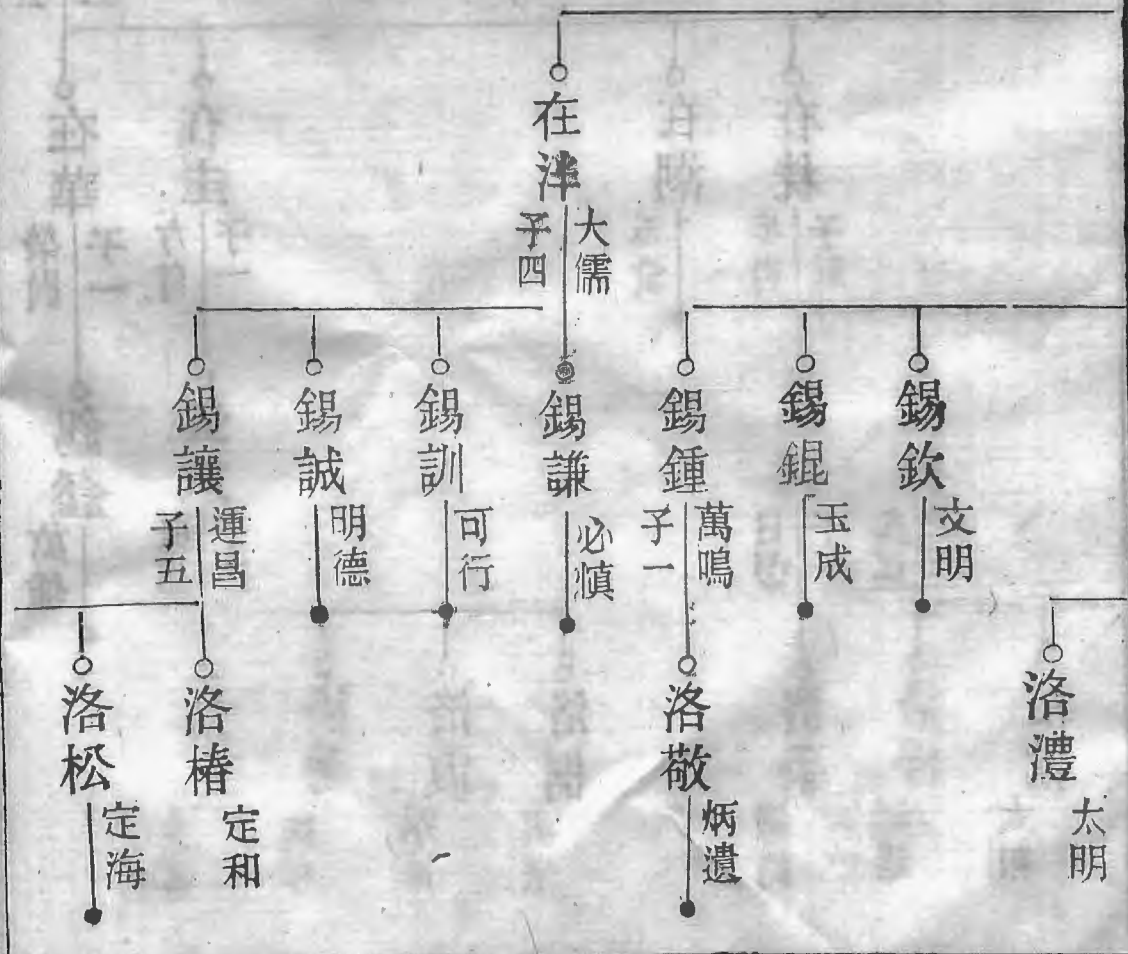 在津
大儒
子四
錫欽
文明
錫錕
玉成
錫鍾
萬鳴
子一
錫謙
必慎
錫訓
可行
錫誠
明德
錫讓
運昌
子五
洛澧
太明
洛敬
炳遺
洛椿
定和
洛松
定海